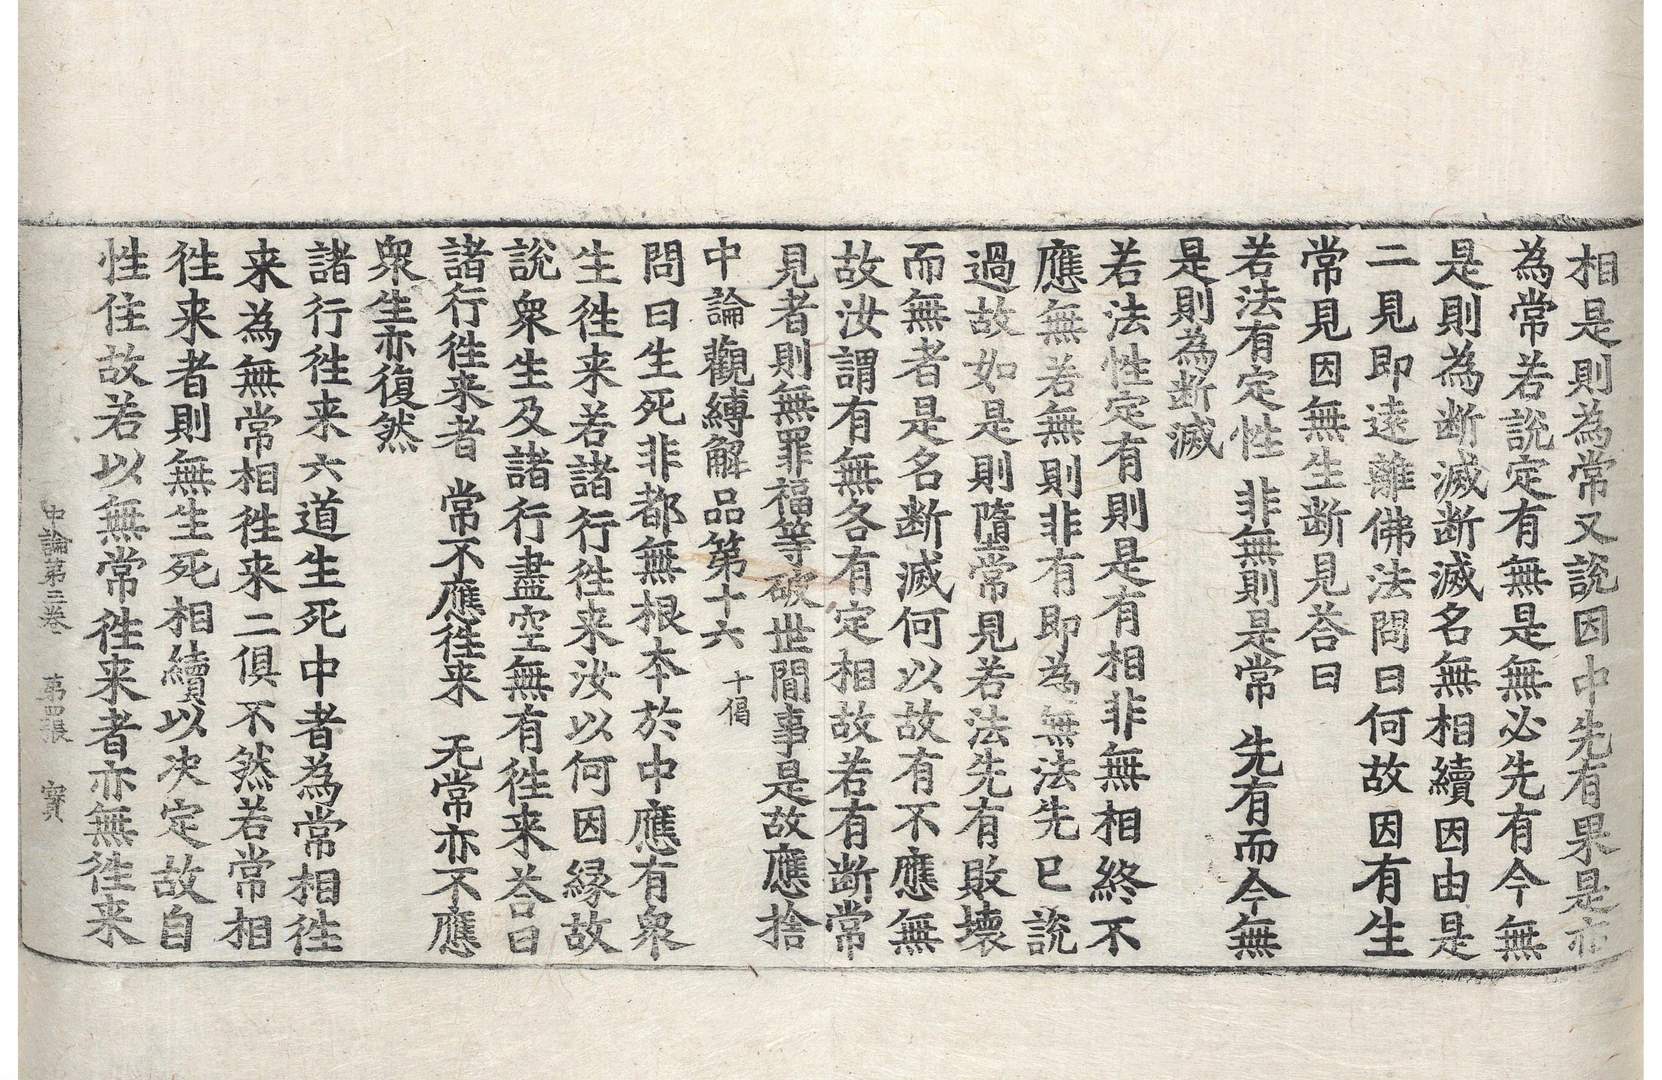 相是則為常又說因中先有果是亦
為常若說定有無是無必先有今無
是則為断滅断滅名無相續因由是
二見即遠離佛法問曰何故因有生
常見因無生断見荅曰
若法有定性　非無則是常　先有而今無
是則為断滅
若法性定有則是有相非無相終不
應無若無則非有即為無法先已說
過故如是則墮常見若法先有敗壞
而無者是名断滅何以故有不應無
故汝謂有無各有定相故若有断常
見者則無罪福等破世間事是故應捨
中論觀縛解品第十六　十偈
問曰生死非都無根本於中應有眾
生徃来若諸行徃来汝以何因緣故
說眾生及諸行盡空無有徃来荅曰
諸行徃来者　常不應徃来　无常亦不應
眾生亦復然
諸行徃来六道生死中者為常相徃
来為無常相徃来二俱不然若常相
徃来者則無生死相續以决定故自
性住故若以無常徃来者亦無徃来
中論第三卷　第四張　寳